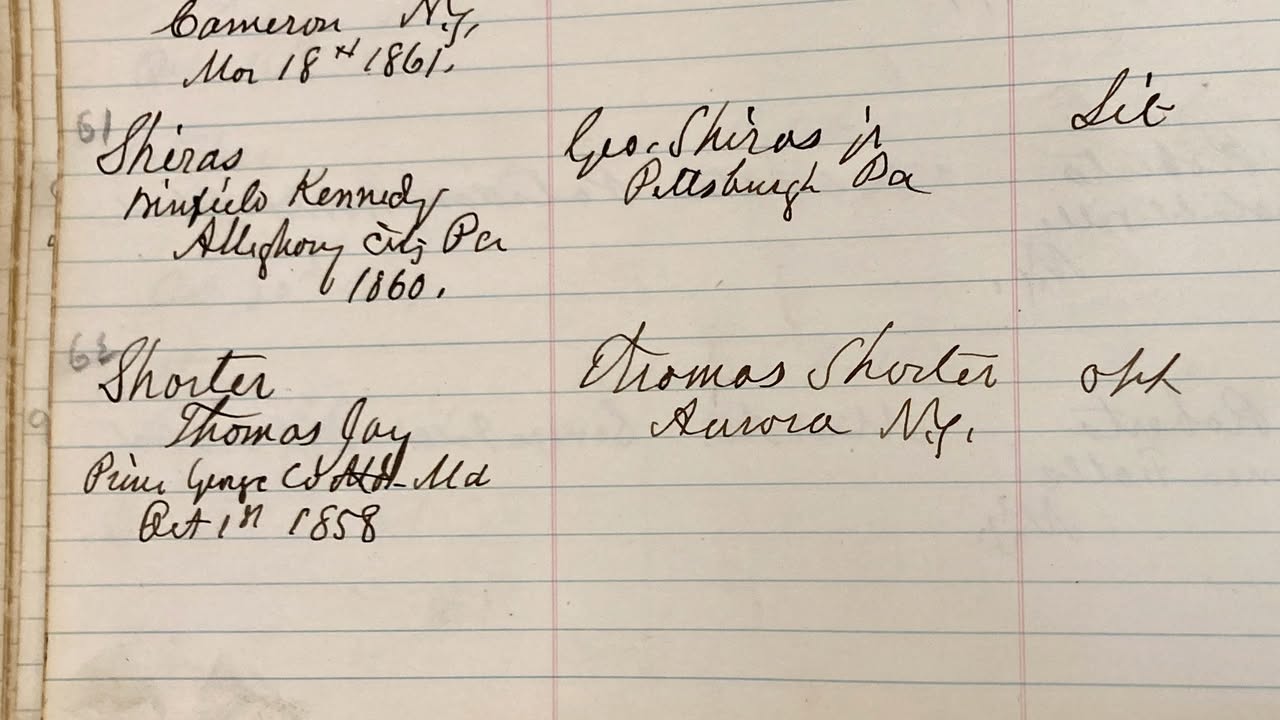 Cameron N.Y,
Mar 18th 1861.
61
Shiras Geo. Shiras jr Lit
Winfield Kennedy Pittsburgh Pa
Alleghony City Pa
1860.
Shorter Thomas Shorter opt
Thomas Jay Aurora N.Y.
Prince George Co Md
Oct 1st 1858